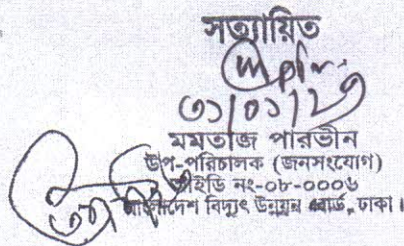 সত্যায়িত
৩১/০১/২৩
মমতাজ পারভীন
উপ-পরিচালক (জনসংযোগ)
আইডি নং-০৮-০০০৬
বাংলাদেশ বিদ্যুৎ উন্নয়ন বোর্ড, ঢাকা।